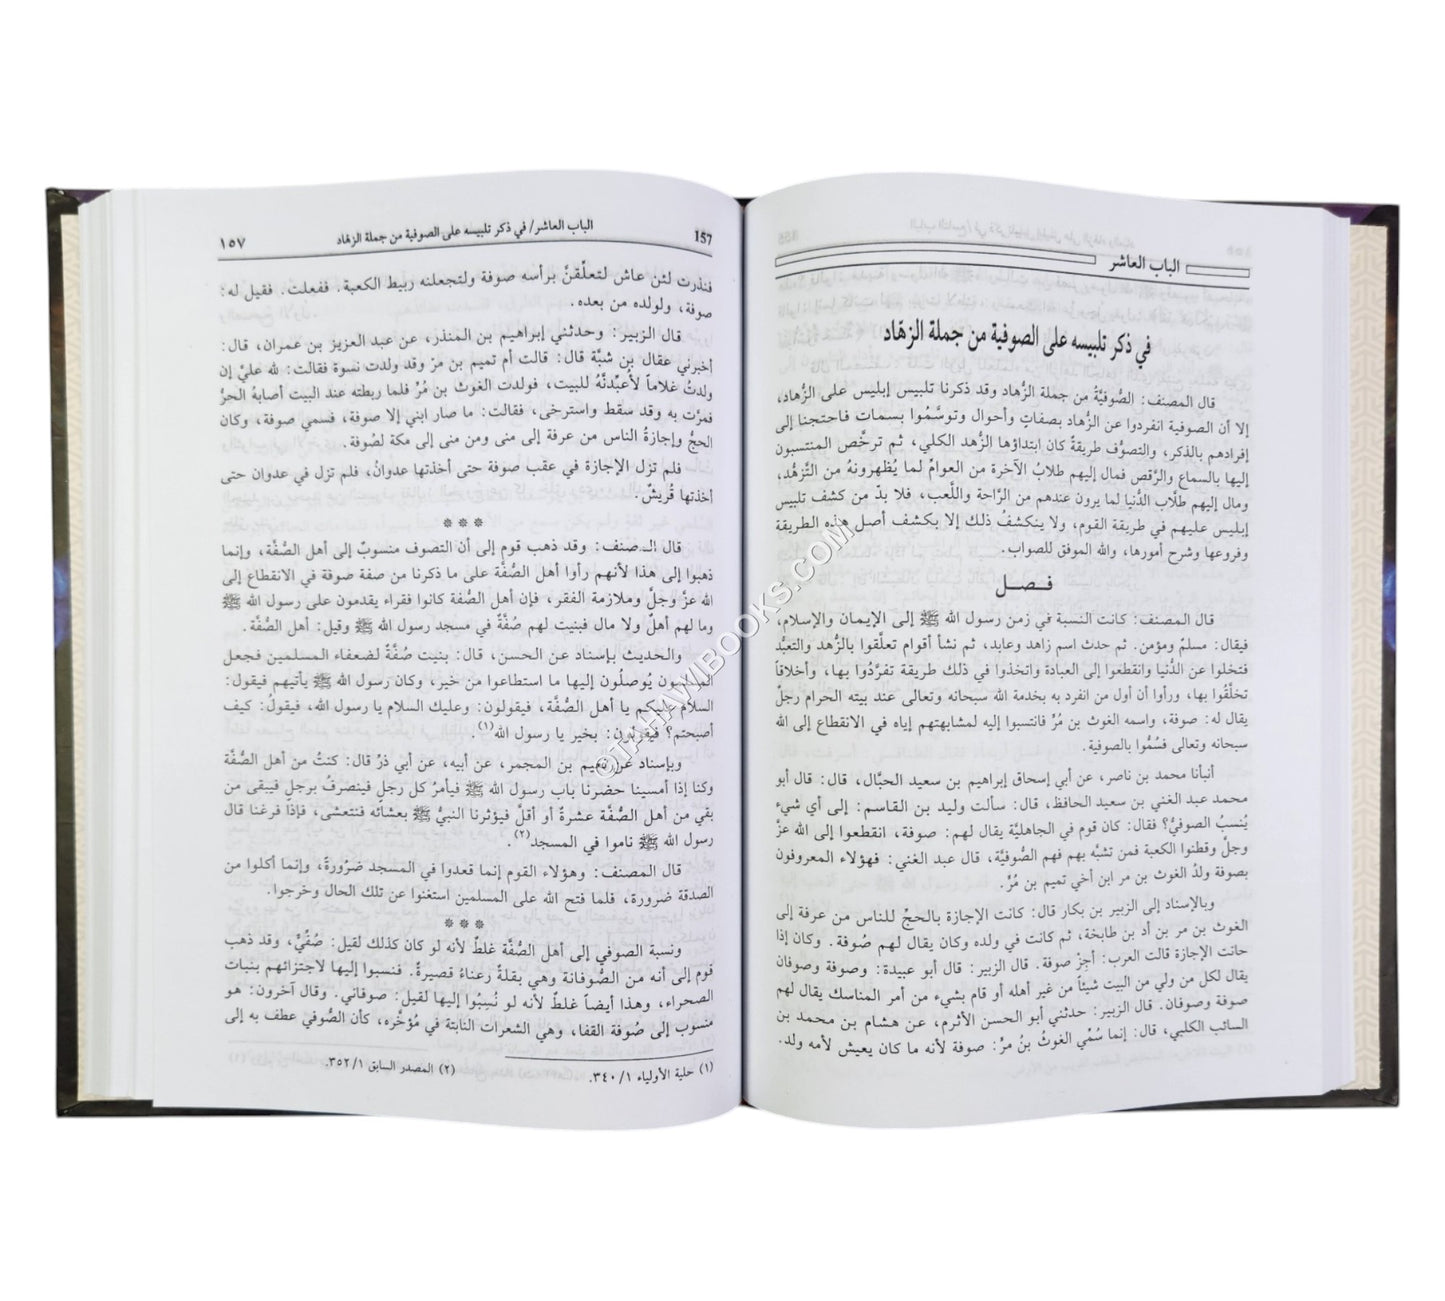 الباب العاشر
في ذكر تلبيسه على الصوفية من جملة الزهّاد
قال المصنف: الصُّوفيَّةُ من جملة الزُّهاد وقد ذكرنا تلبيس إبليس على الزُّهاد،
إلا أن الصوفية انفردوا عن الزُّهاد بصفاتٍ وأحوال وتوسَّمُوا بسمات فاحتجنا إلى
إفرادهم بالذكر، والتصوُّف طريقةٌ كان ابتداؤها الزُّهد الكلي، ثم ترخَّص المنتسبون
إليها بالسماع والرَّقص فمال إليهم طلابُ الآخرة من العوامُ لما يُظهرونهُ من التَّزهُّد،
ومال إليهم طلَّاب الدُّنيا لما يرون عندهم من الرَّاحة واللَّعب، فلا بدّ من كشف تلبيس
إبليس عليهم في طريقة القوم، ولا ينكشفُ ذلك إلا بكشف أصل هذه الطريقة
وفروعها وشرح أمورها، والله الموفق للصواب.
فـصـل
قال المصنف: كانت النسبة في زمن رسول الله ﷺ إلى الإيمان والإسلام،
فيقال: مسلمٌ ومؤمن. ثم حدث اسم زاهد وعابد، ثم نشأ أقوام تعلَّقوا بالزُّهد والتعبُّد
فتخلوا عن الدُّنيا وانقطعوا إلى العبادة واتخذوا في ذلك طريقة تفرَّدُوا بها، وأخلاقاً
تخلَّقُوا بها، ورأوا أن أول من انفرد به بخدمة الله سبحانه وتعالى عند بيته الحرام رجلٌ
يقال له: صوفة، واسمه الغوث بن مُرّ فانتسبوا إليه لمشابهتهم إياه في الانقطاع إلى الله
سبحانه وتعالى فسُمُّوا بالصوفية.
أنبأنا محمد بن ناصر، عن أبي إسحاق إبراهيم بن سعيد الحبَّال، قال: قال أبو
محمد عبد الغني بن سعيد الحافظ، قال: سألت وليد بن القاسم: إلى أي شيء
يُنسبُ الصوفيُّ؟ فقال: كان قوم في الجاهليَّة يقال لهم: صوفة، انقطعوا إلى الله عزَّ
وجلَّ وقطنوا الكعبة فمن تشبَّه بهم فهم الصُّوفيَّة، قال عبد الغني: فهؤلاء المعروفون
بصوفة ولدُ الغوث بن مر ابن أخي تميم بن مُرّ.
وبالإسناد إلى الزبير بن بكار قال: كانت الإجازة بالحجّ للناس من عرفة إلى
الغوث بن مر بن أد بن طابخة، ثم كانت في ولده وكان يقال لهم صُوفة. وكان إذا
حانت الإجازة قالت العرب: أجِزْ صوفة. قال الزبير: قال أبو عبيدة: وصوفة وصوفان
يقال لكل من ولي من البيت شيئاً من غير أهله أو قام بشيء من أمر المناسك يقال لهم
صوفة وصوفان. قال الزبير: حدثني أبو الحسن الأثرم، عن هشام بن محمد بن
السائب الكلبي، قال: إنما سُمِّي الغوثُ بنُ مرٍّ: صوفة لأنه ما كان يعيش لأمه ولد.
157
الباب العاشر/ في ذكر تلبيسه على الصوفية من جملة الزهاد
١٥٧
فنذرت لئن عاش لتعلّقنَّ برأسه صوفة ولتجعلنه ربيط الكعبة. ففعلت. فقيل له:
صوفة، ولولده من بعده.
قال الزبير: وحدثني إبراهيم بن المنذر، عن عبد العزيز بن عمران، قال:
أخبرني عقال بن شبَّة قال: قالت أم تميم بن مرّ وقد ولدت نسوة فقالت: لله عليَّ إن
ولدتُ غلاماً لأعبِّدنَّهُ للبيت، فولدت الغوث بن مُرّ فلما ربطته عند البيت أصابهُ الحرُّ
فمرَّت به وقد سقط واسترخى، فقالت: ما صار ابني إلا صوفة، فسمي صوفة، وكان
الحجُّ وإجازةُ الناس من عرفة إلى منى ومن منى إلى مكة لصُوفة.
فلم تزل الإجازة في عقب صوفة حتى أخذتها عدوانُ، فلم تزل في عدوان حتى
أخذتها قُريشٌ.
***
قال المصنف: وقد ذهب قوم إلى أن التصوف منسوبٌ إلى أهل الصُّفَّة، وإنما
ذهبوا إلى هذا لأنهم رأوا أهل الصُّفَّة على ما ذكرنا من صفة صوفة في الانقطاع إلى
الله عزَّ وجلَّ وملازمة الفقر، فإن أهل الصُّفة كانوا فقراء يقدمون على رسول الله ﷺ
وما لهم أهلٌ ولا مال فبنيت لهم صُفَّةٌ في مسجد رسول الله ﷺ وقيل: أهل الصُّفَّة.
والحديث بإسناد عن الحسن، قال: بنيت صُفَّةٌ لضعفاء المسلمين فجعل
المسلمون يُوصلُون إليها ما استطاعوا من خير، وكان رسول الله ﷺ يأتيهم فيقول:
السلام عليكم يا أهل الصُّفَّة، فيقولون: وعليك السلام يا رسول الله، فيقولُ: كيف
أصبحتم؟ فيقولون: بخير يا رسول الله(١).
وبإسناد عن نعيم بن المجمر، عن أبيه، عن أبي ذرّ قال: كنتُ من أهل الصُّفَّة
وكنا إذا أمسينا حضرنا باب رسول الله ﷺ فيأمرُ كل رجلٍ فينصرفُ برجلٍ فيبقى من
بقي من أهل الصُّفَّة عشرةٌ أو أقلَّ فيؤثرنا النبيُّ ﷺ بعشائه فنتعشى، فإذا فرغنا قال
رسول الله ﷺ ناموا في المسجد(٢).
قال المصنف: وهؤلاء القوم إنما قعدوا في المسجد ضرُورةً، وإنما أكلوا من
الصدقة ضرورة، فلما فتح الله على المسلمين استغنوا عن تلك الحال وخرجوا.
***
ونسبة الصوفي إلى أهل الصُّفَّة غلطٌ لأنه لو كان كذلك لقيل: صُفِّيٌّ، وقد ذهب
قوم إلى أنه من الصُّوفانة وهي بقلةٌ رعناءُ قصيرةٌ. فنسبوا إليها لاجتزائهم بنبات
الصحراء، وهذا أيضاً غلطٌ لأنه لو نُسِبُوا إليها لقيل: صوفاني. وقال آخرون: هو
منسوب إلى صُوفة القفا، وهي الشعرات النابتة في مُؤخَّره، كأن الصُّوفي عطف به إلى
(١) حلية الأولياء ١/ ٣٤٠.
(٢) المصدر السابق ١/ ٣٥٢.
©TAHAWIBOOKS.COM